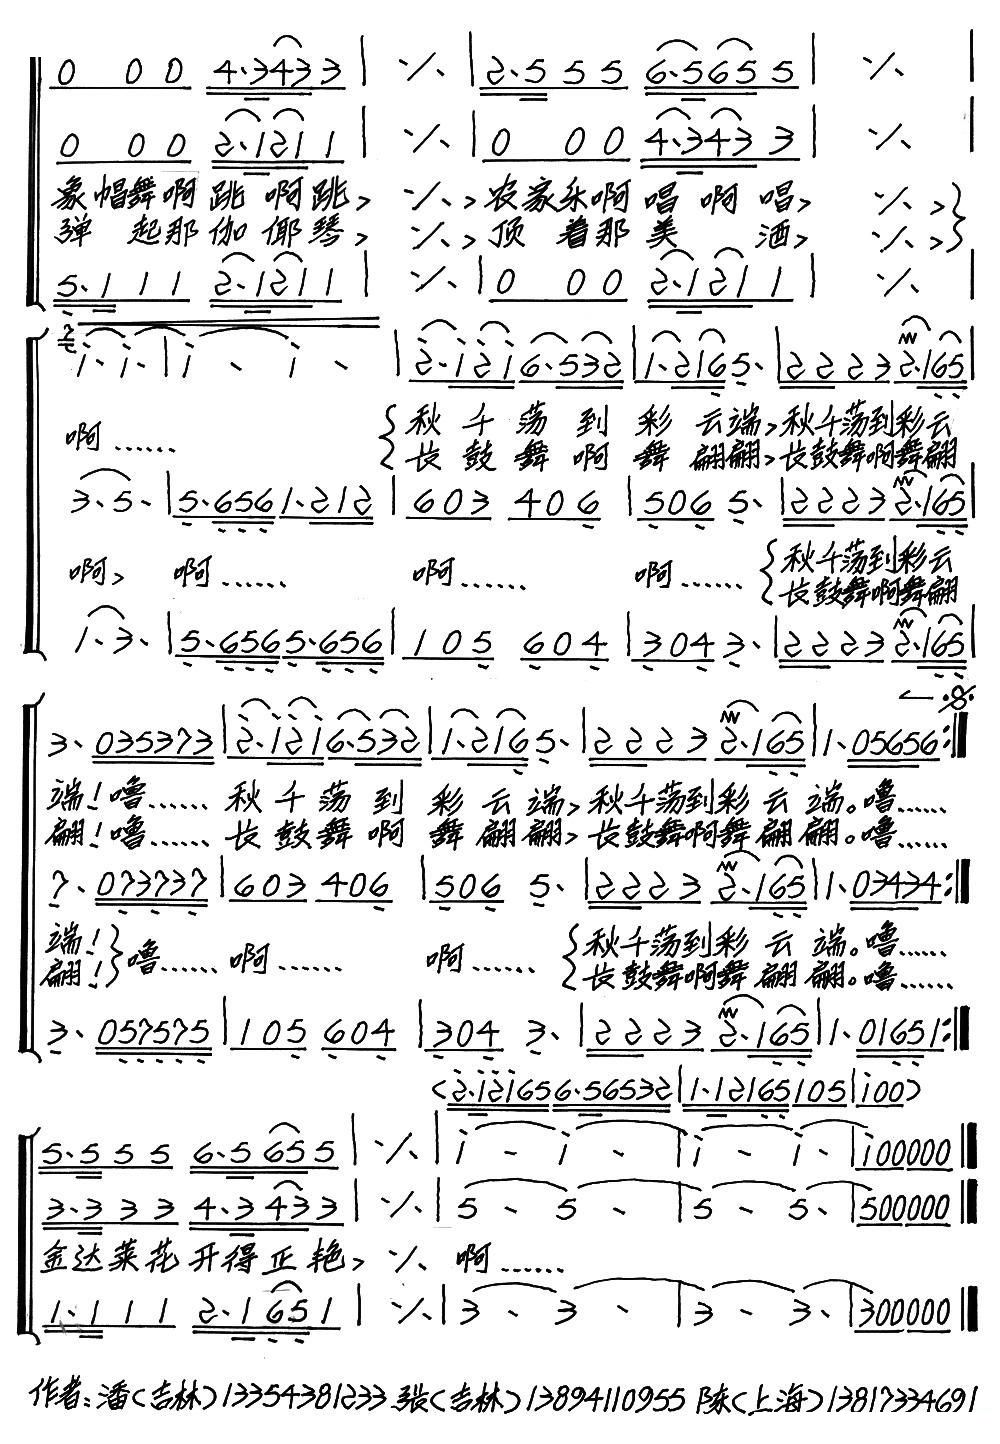 0 0 0 4·3433 | ·/· | 2·5 5 5 6·5655 | ·/· |
0 0 0 2·1211 | ·/· | 0 0 0 4·343 3 | ·/· |
象帽舞啊跳 啊跳, ·/·, 农家乐啊唱 啊 唱, ·/·,
弹 起那伽倻琴, ·/·, 顶 着那美 酒, ·/·,
5·1 1 1 2·1211 | ·/· | 0 0 0 2·1211 | ·/· |
i· i· | i - i - | 2·1216·532 | 1·2165· | 2 2 2 3 2·165 |
啊…… 秋千荡到彩云端,秋千荡到彩云
长鼓舞啊舞翩翩,长鼓舞啊舞翩
3·5· | 5·6561·212 | 603 406 | 506 5· | 2223 2·165 |
啊, 啊…… 啊…… 啊…… 秋千荡到彩云
长鼓舞啊舞翩
1·3· | 5·6565·656 | 105 604 | 304 3· | 2223 2·165 |
3·035373 | 2·1216·532 | 1·2165· | 2223 2·165 | 1·05656 :‖
端!噜…… 秋千荡到彩云端,秋千荡到彩云端。噜……
翩!噜…… 长鼓舞啊舞翩翩,长鼓舞啊舞翩翩。噜……
7·073737 | 603 406 | 506 5· | 2223 2·165 | 1·03434 :‖
端! 噜…… 啊…… 啊…… 秋千荡到彩云端。噜……
翩! 长鼓舞啊舞翩翩。噜……
3·057575 | 105 604 | 304 3· | 2223 2·165 | 1·01651 :‖
(2·121656·56532 | 1·12165105 | i00)
5·5 5 5 6·5655 | ·/· | i - i - | i - i - | i00000 ‖
3·3 3 3 4·3433 | ·/· | 5 - 5 - | 5 - 5· | 500000 ‖
金达莱花开得正艳, ·/· 啊……
1·1 1 1 2·1651 | ·/· | 3 - 3 - | 3 - 3· | 300000 ‖
作者:潘(吉林)13354381233 张(吉林)13894110955 陈(上海)13817334691